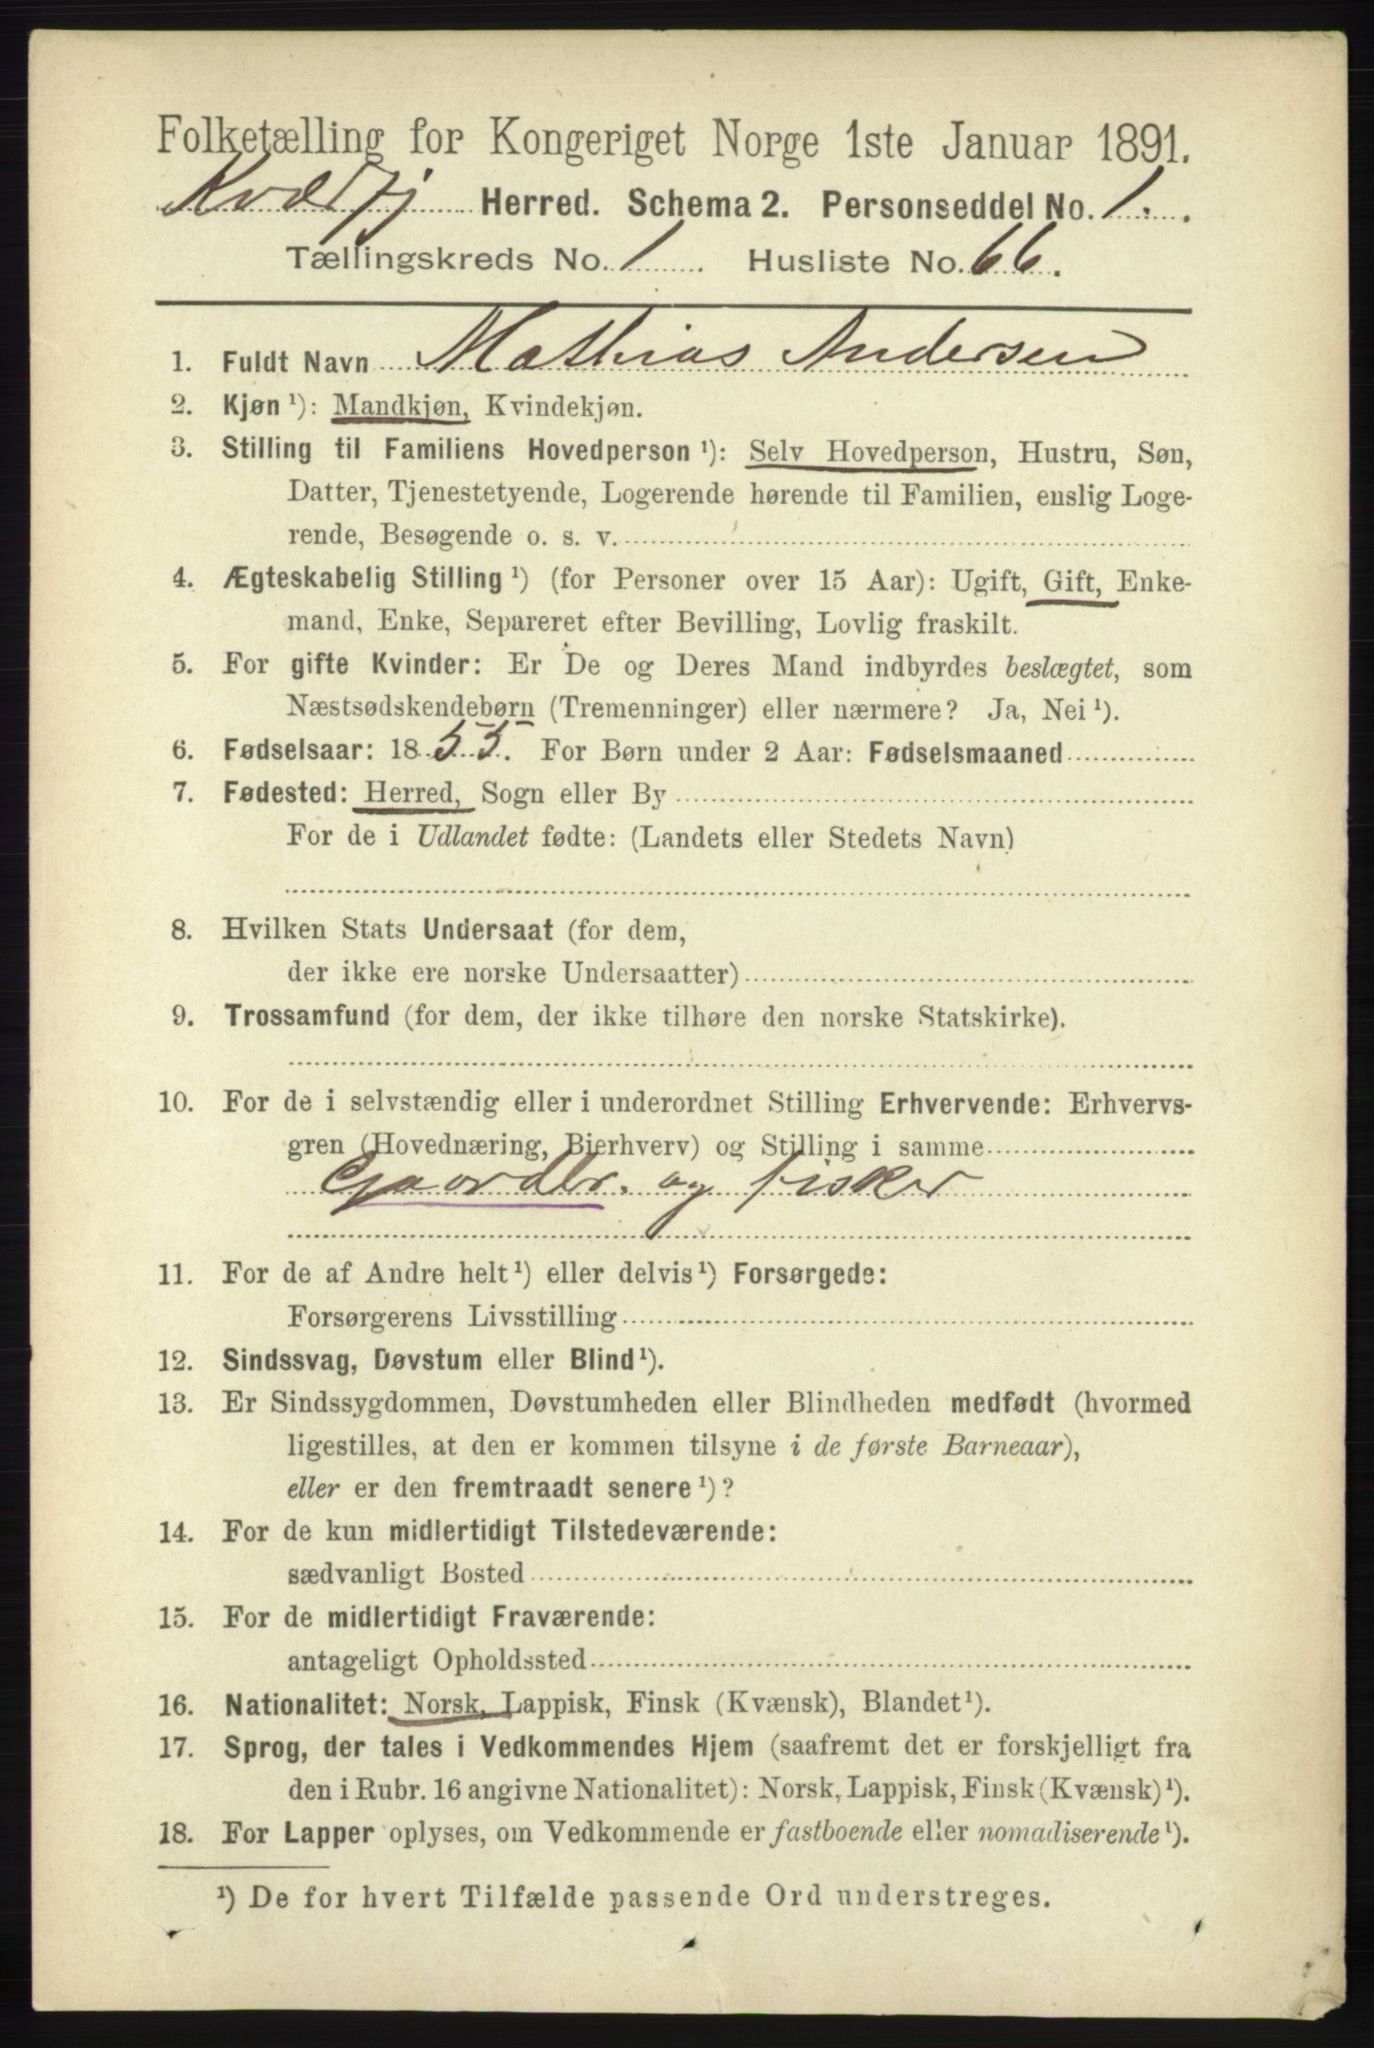 Folketælling for Kongeriget Norge 1ste Januar 1891.
Kvæfj Herred. Schema 2. Personseddel No. 1.
Tællingskreds No. 1 Husliste No. 66.
1. Fuldt Navn Mathias Andersen
2. Kjøn ¹): Mandkjøn, Kvindekjøn.
3. Stilling til Familiens Hovedperson ¹): Selv Hovedperson, Hustru, Søn,
Datter, Tjenestetyende, Logerende hørende til Familien, enslig Loge-
rende, Besøgende o. s. v.
4. Ægteskabelig Stilling ¹) (for Personer over 15 Aar): Ugift, Gift, Enke-
mand, Enke, Separeret efter Bevilling, Lovlig fraskilt.
5. For gifte Kvinder: Er De og Deres Mand indbyrdes beslægtet, som
Næstsødskendebørn (Tremenninger) eller nærmere? Ja, Nei ¹).
6. Fødselsaar: 1855. For Børn under 2 Aar: Fødselsmaaned
7. Fødested: Herred, Sogn eller By
For de i Udlandet fødte: (Landets eller Stedets Navn)
8. Hvilken Stats Undersaat (for dem,
der ikke ere norske Undersaatter)
9. Trossamfund (for dem, der ikke tilhøre den norske Statskirke).
10. For de i selvstændig eller i underordnet Stilling Erhvervende: Erhvervs-
gren (Hovednæring, Bierhverv) og Stilling i samme
Gaardbr. og fisker
11. For de af Andre helt ¹) eller delvis ¹) Forsørgede:
Forsørgerens Livsstilling
12. Sindssvag, Døvstum eller Blind ¹).
13. Er Sindssygdommen, Døvstumheden eller Blindheden medfødt (hvormed
ligestilles, at den er kommen tilsyne i de første Barneaar),
eller er den fremtraadt senere ¹)?
14. For de kun midlertidigt Tilstedeværende:
sædvanligt Bosted
15. For de midlertidigt Fraværende:
antageligt Opholdssted
16. Nationalitet: Norsk, Lappisk, Finsk (Kvænsk), Blandet ¹).
17. Sprog, der tales i Vedkommendes Hjem (saafremt det er forskjelligt fra
den i Rubr. 16 angivne Nationalitet): Norsk, Lappisk, Finsk (Kvænsk) ¹).
18. For Lapper oplyses, om Vedkommende er fastboende eller nomadiserende ¹).
¹) De for hvert Tilfælde passende Ord understreges.